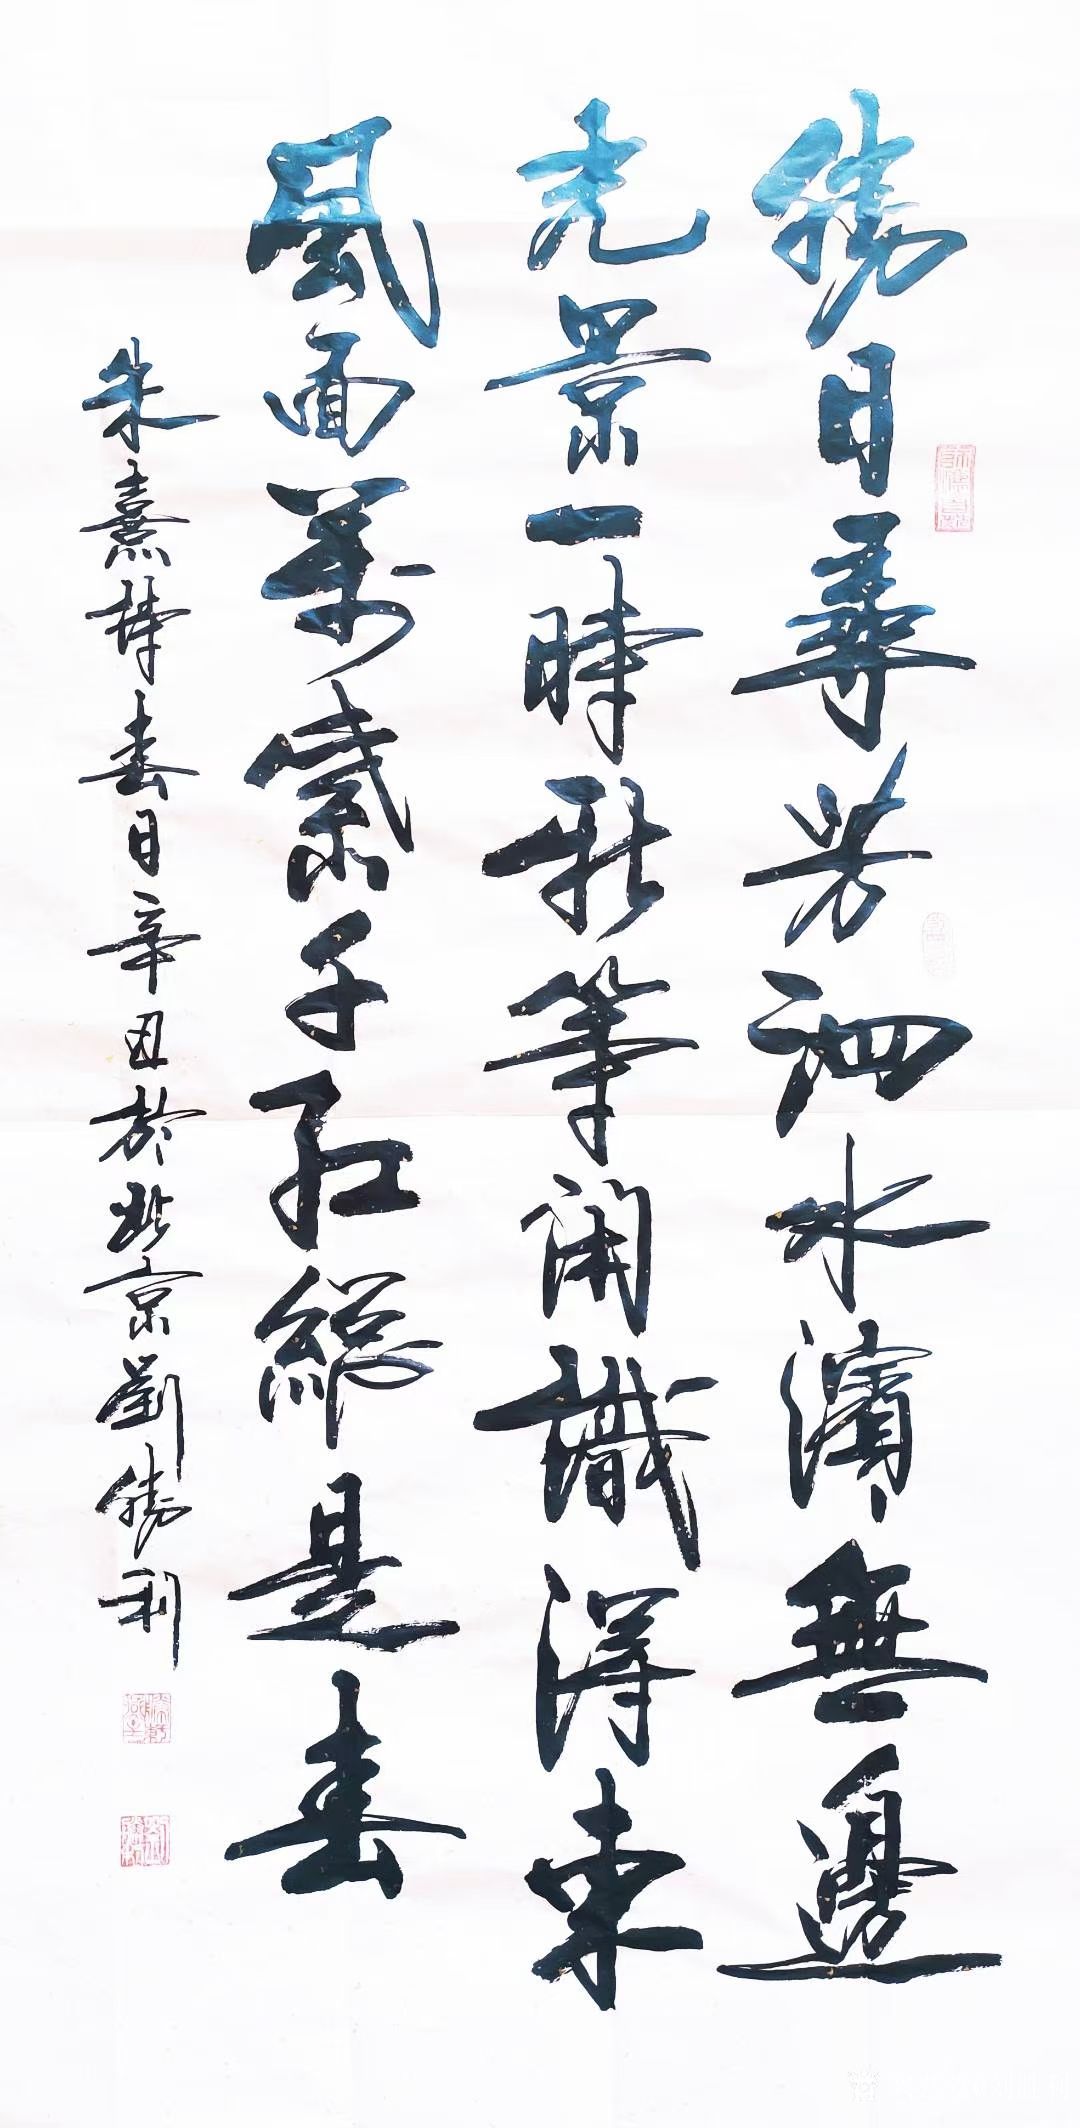 勝日尋芳泗水濱無邊
光景一時新等閑識得東
風面萬紫千紅總是春
朱熹撰春日辛丑於北京劉勝利